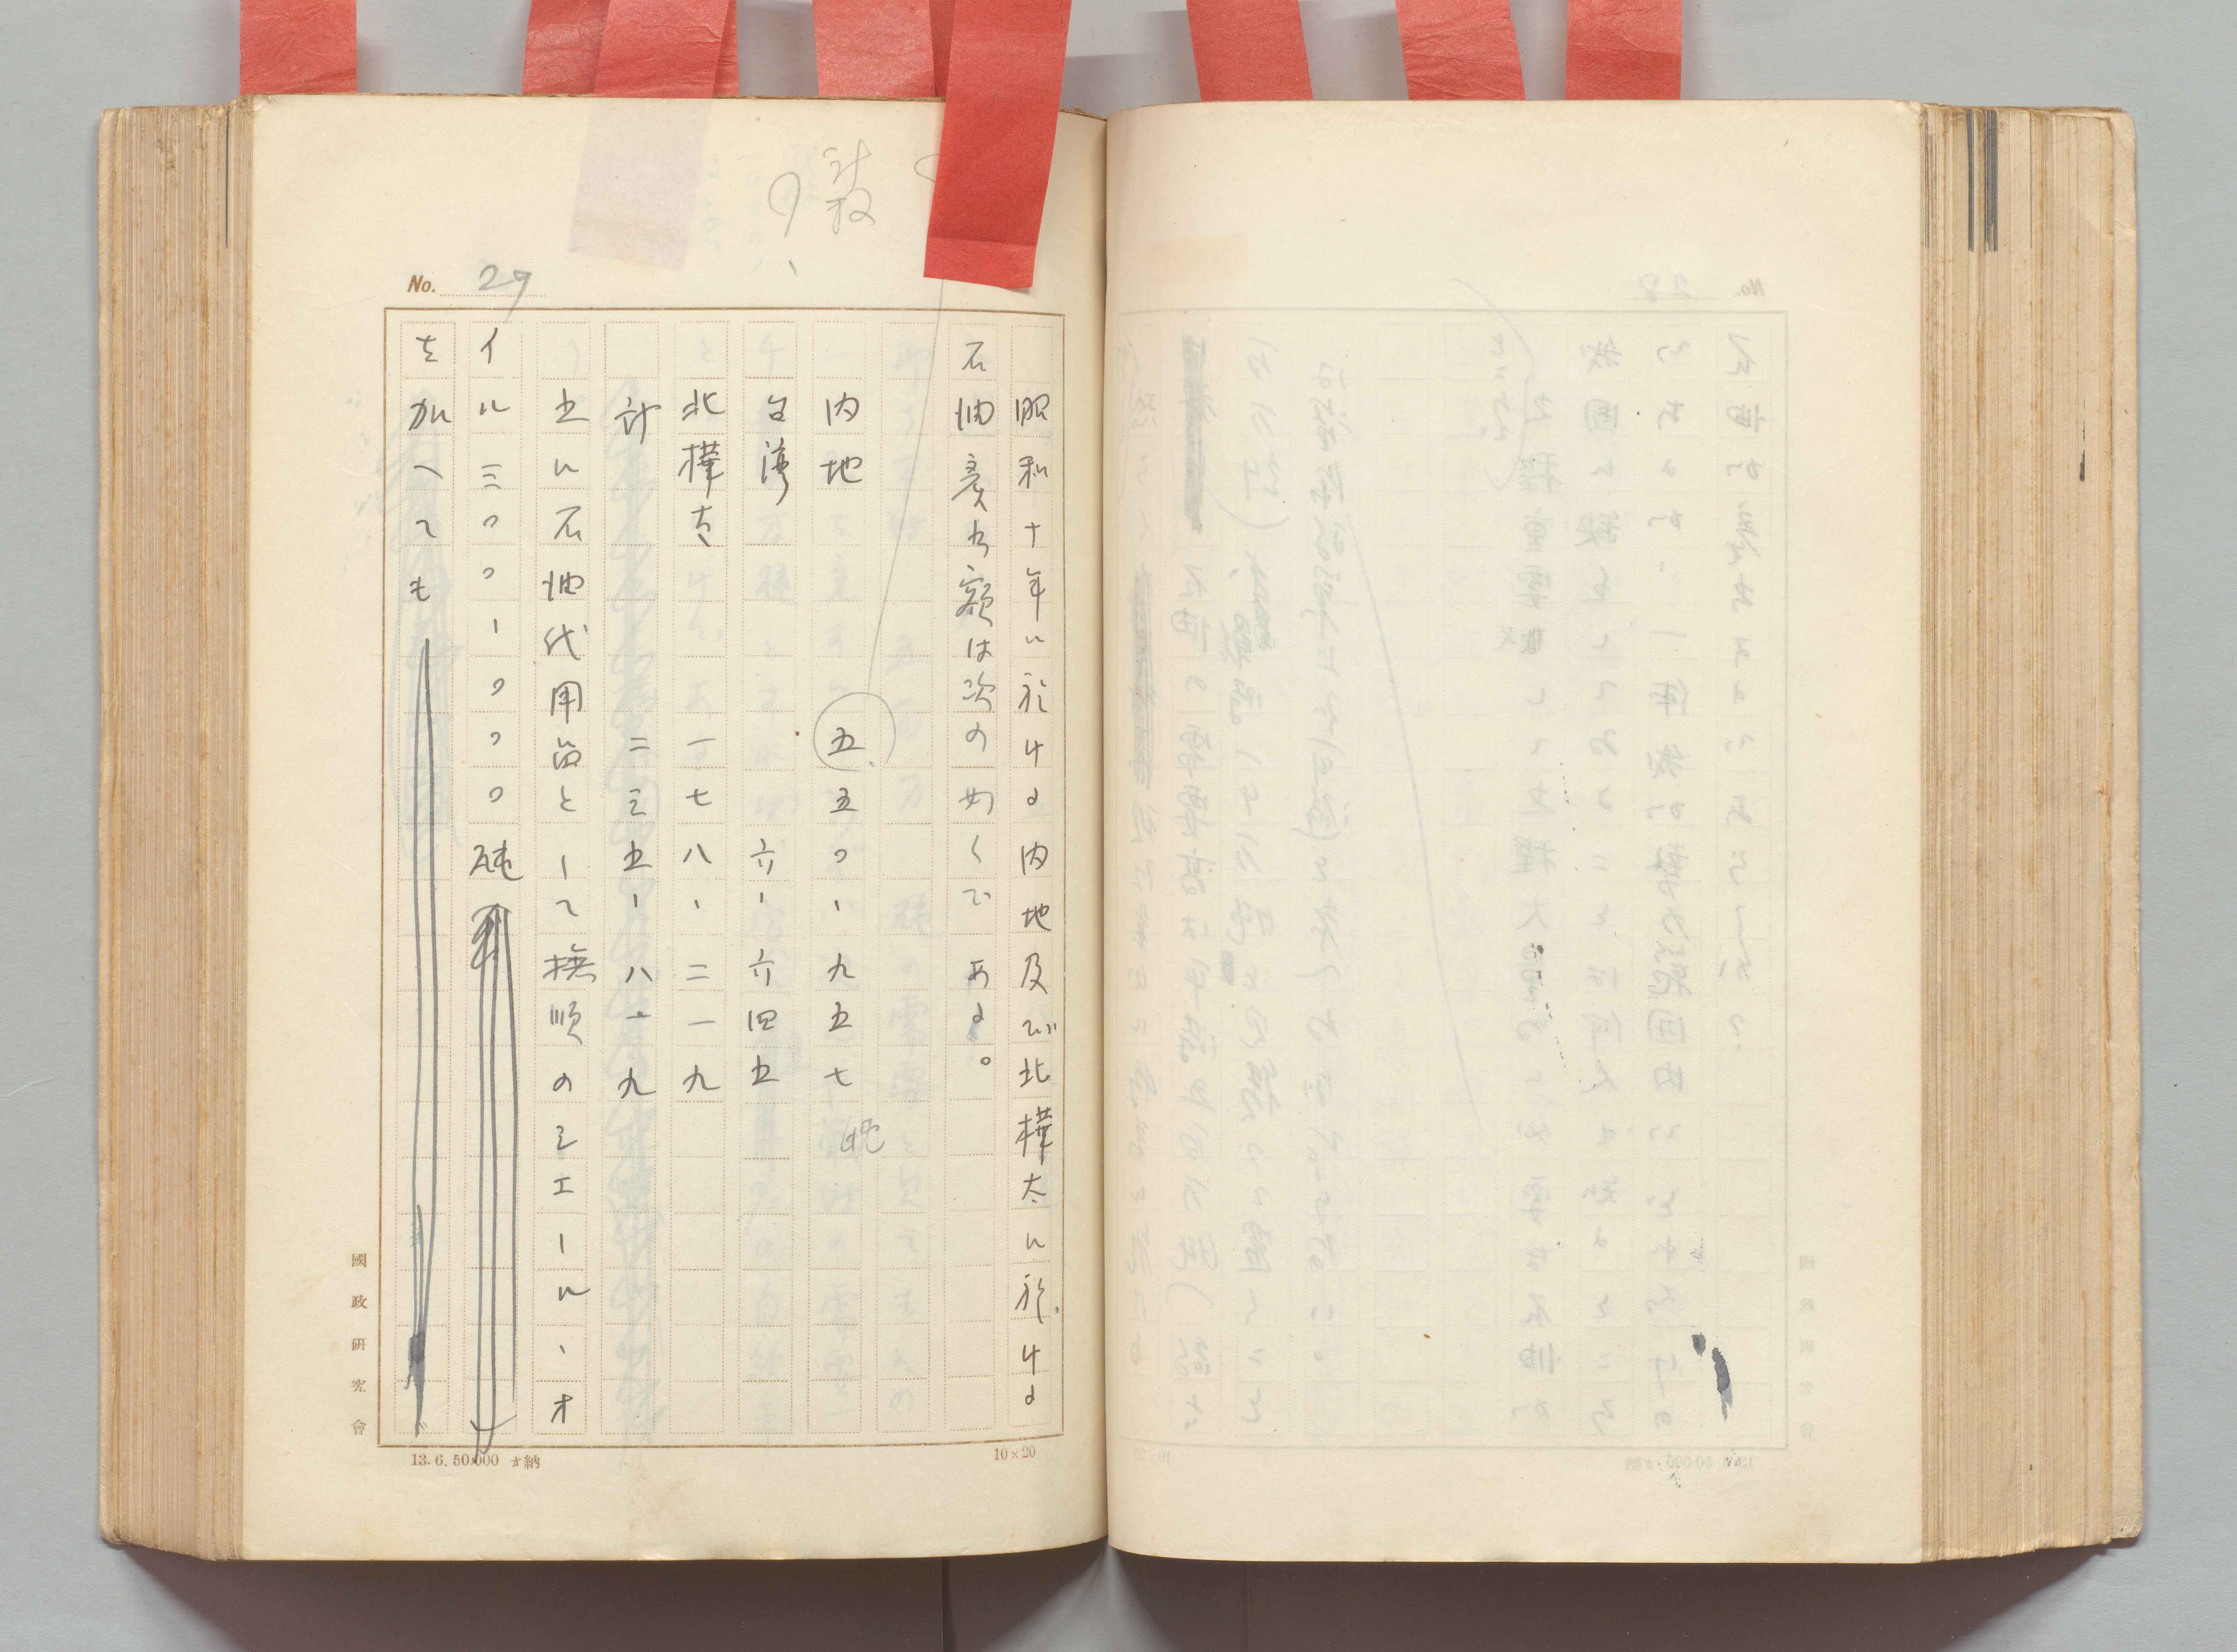 No. 29
昭和十年に於ける内地及び北樺太に於ける
石油産出額は次の如くである。
内地 五五〇、九五七
台湾 六、六四五
北樺太 一七八、二一九
計 二三五、八一九
更に石油代用品として撫順のシエール、オ
イル三〇〇、〇〇〇瓲
を加へても
國政研究會
13.6.50,000 納
10×20